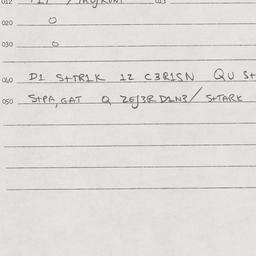 012
013
020 O
030 O
040 D1 S+TR1K 12 C3R1SN QU S+
050 S+PA, GAT Q ZE/3R D1N3/ S+TARK